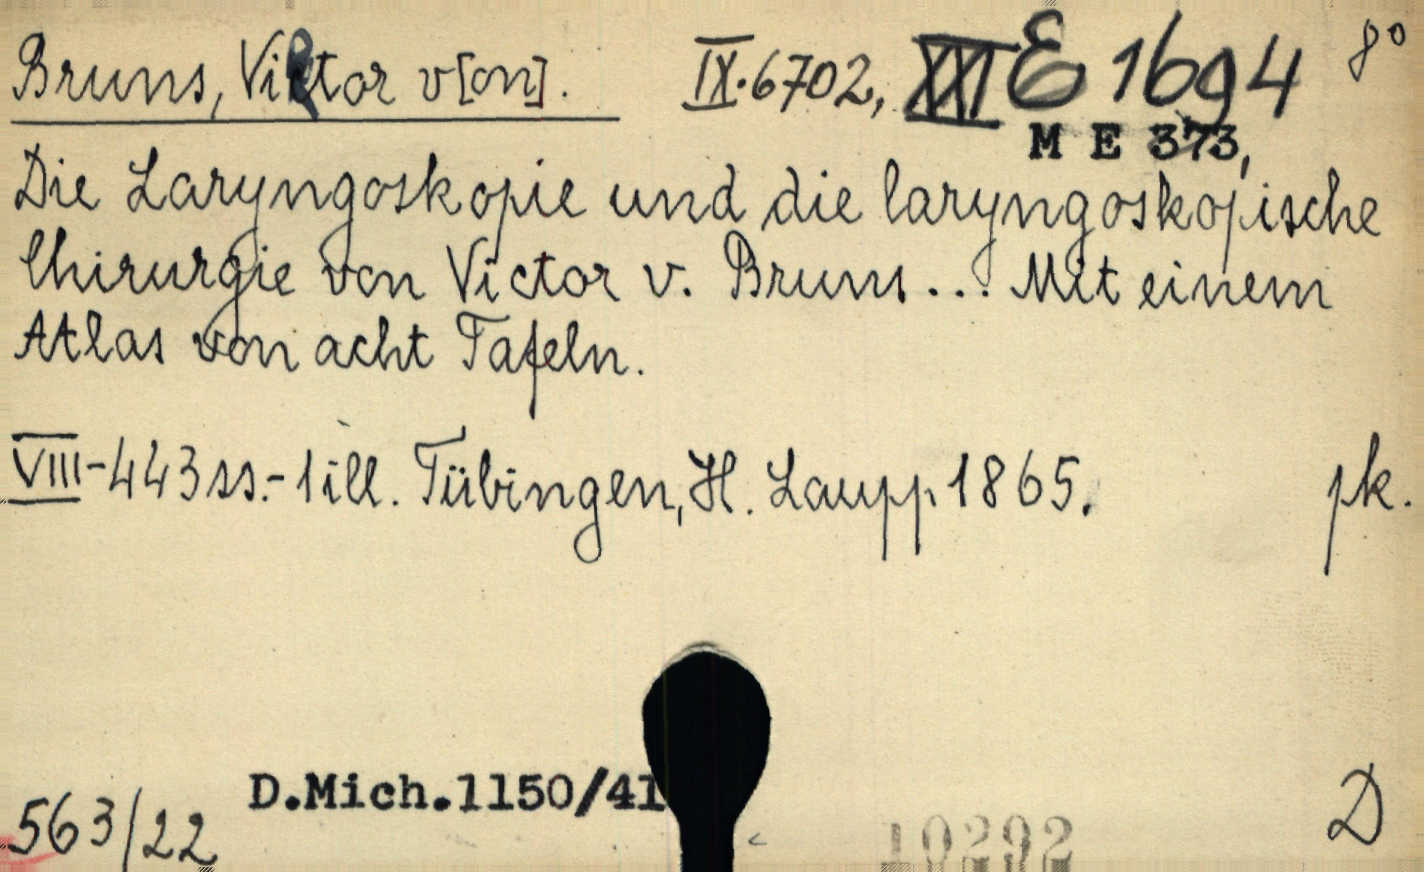 Bruns, Viktor v[on]. IX.6702, XXI E 1694 8°
M E 373,
Die Laryngoskopie und die laryngoskopische
Chirurgie von Victor v. Bruns... Mit einem
Atlas von acht Tafeln.
VIII-443 ss.- 1 ill. Tübingen, H. Laupp. 1865. pk.
D.Mich.1150/41
563/22 19292 D